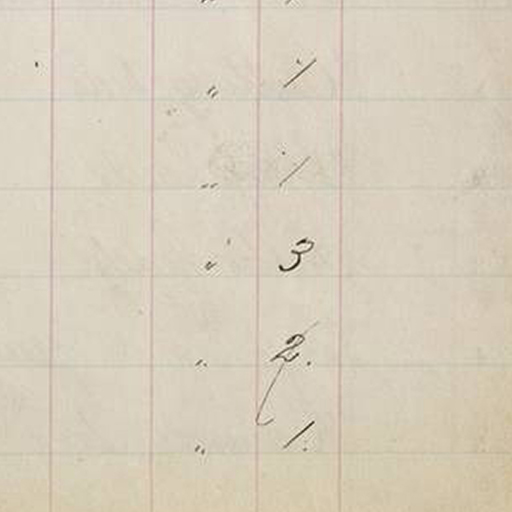 " 1
" 1
" 3
" 2.
" 1.